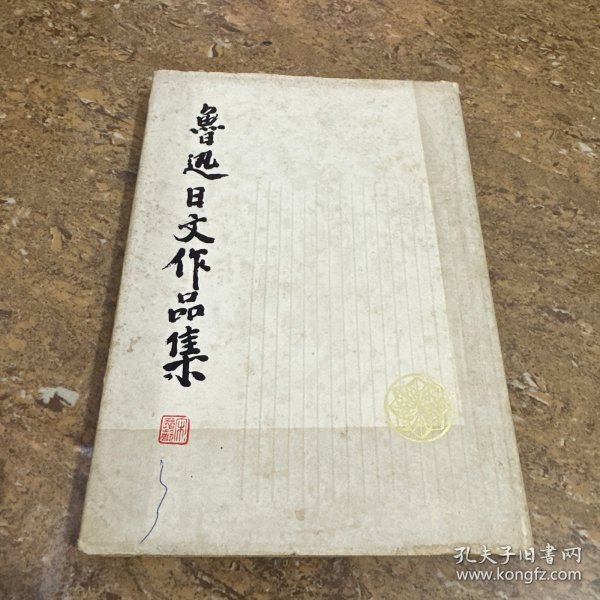 魯迅日文作品集
孔夫子旧書网
www.kongfz.com